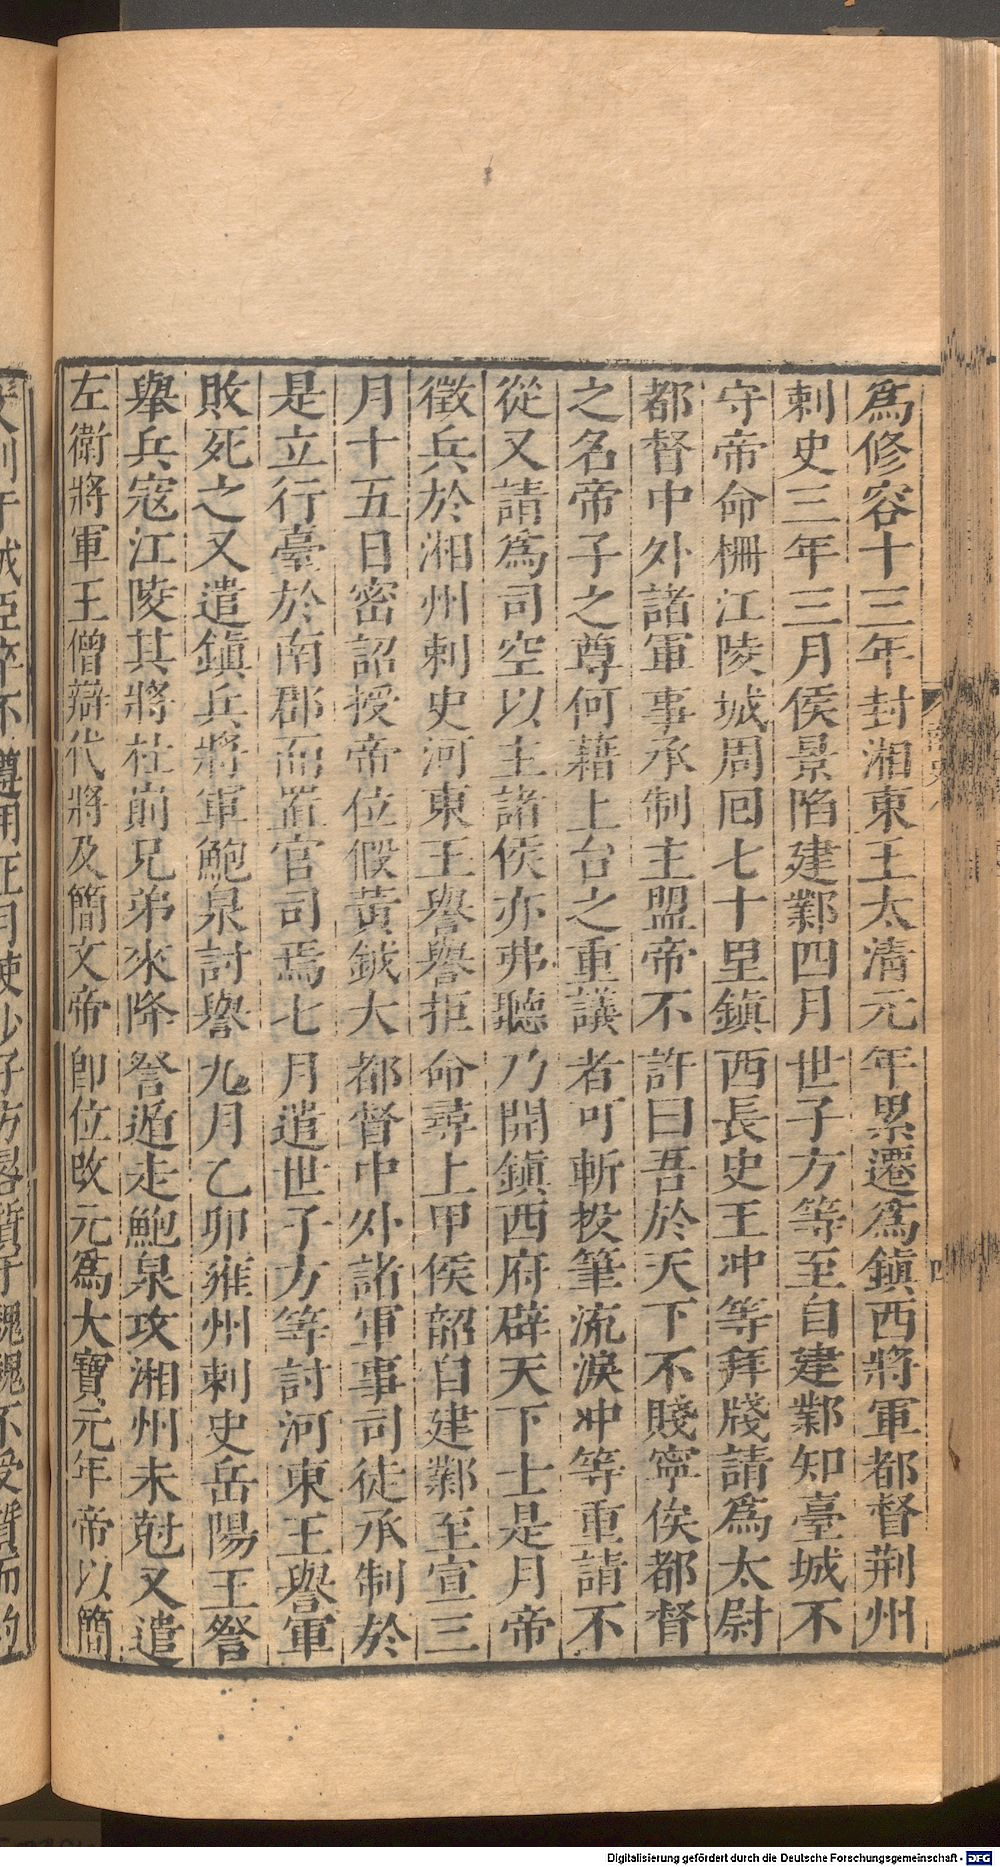 爲修容十三年封湘東王太清元年累遷爲鎭西將軍都督荆州
刺史三年三月侯景陷建鄴四月世子方等至自建鄴知臺城不
守帝命柵江陵城周回七十里鎭西長史王冲等拜牋請爲太尉
都督中外諸軍事承制主盟帝不許曰吾於天下不賤寧俟都督
之名帝子之尊何藉上台之重議者可斬投筆流淚冲等重請不
從又請爲司空以主諸侯亦弗聽乃開鎭西府辟天下士是月帝
徵兵於湘州刺史河東王譽譽拒命尋上甲侯韶自建鄴至宣三
月十五日密詔授帝位假黃鉞大都督中外諸軍事司徒承制於
是立行臺於南郡而置官司焉七月遣世子方等討河東王譽軍
敗死之又遣鎭兵將軍鮑泉討譽九月乙卯雍州刺史岳陽王詧
舉兵寇江陵其將杜崱兄弟來降詧遁走鮑泉攻湘州未尅又遣
左衛將軍王僧辯代將及簡文帝卽位改元爲大寶元年帝以簡
四
Digitalisierung gefördert durch die Deutsche Forschungsgemeinschaft - DFG